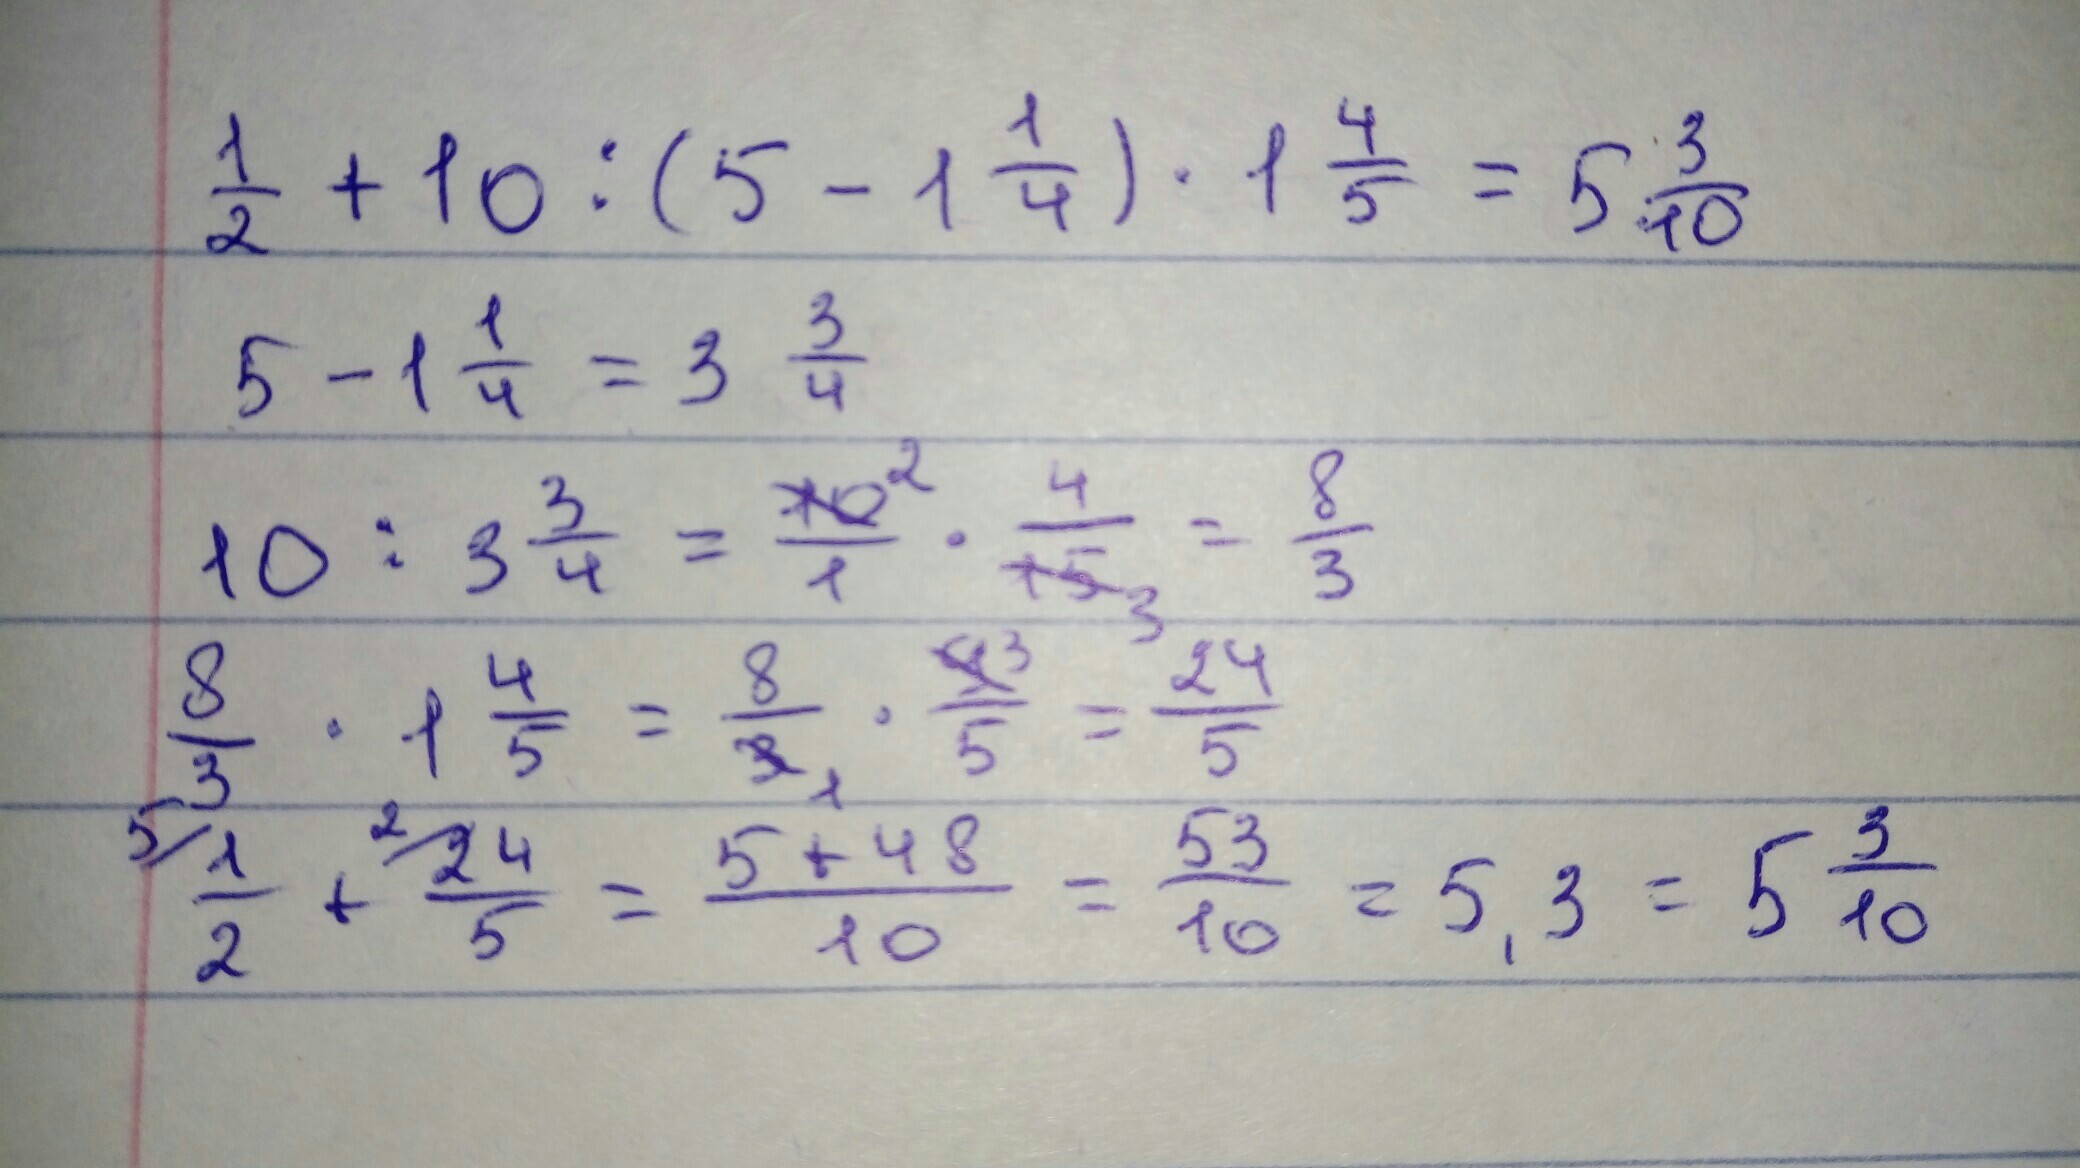 1/2 + 10 : (5 - 1 1/4) · 1 4/5 = 5 3/10
5 - 1 1/4 = 3 3/4
10 : 3 3/4 = 10 2/1 · 4/15 3 = 8/3
8/3 · 1 4/5 = 8/3 1 · 9 3/5 = 24/5
5/ 1/2 + 2/ 24/5 = 5+48/10 = 53/10 = 5,3 = 5 3/10